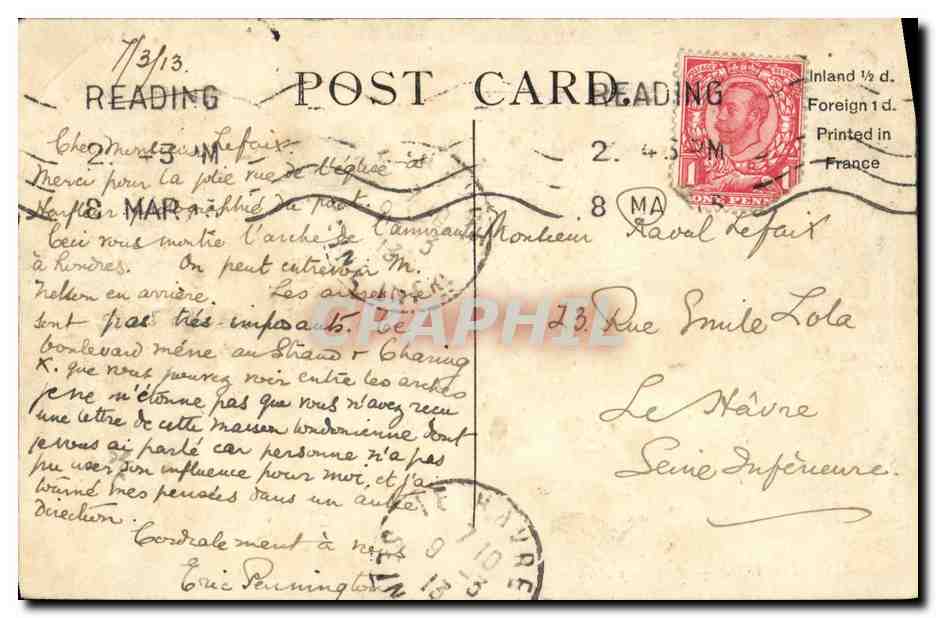 7/3/13.
READING
2. -3 PM
8 MAR
POST CARD.
READING
2. 45 PM
8 MA
POSTAGE REVENUE
1 1
ONE PENNY
Inland ½ d.
Foreign 1 d.
Printed in
France
Cher Monsieur Lefaix
Merci pour la jolie vue de l'église d'
Harfleur
du port.
Ceci vous montre l'arche de l'amirauté
à Londres. On peut entrevoir M.
Nelson en arrière. Les arches ne
sont pas très imposants. Ce
boulevard mène au Strand & Charing
X. que vous pouvez voir entre les arches
je ne m'étonne pas que vous n'avez reçu
une lettre de cette maison londonienne dont
je vous ai parlé car personne n'a pas
pu user son influence pour moi, et j'ai
tourné mes pensées dans un autre
direction.
Cordialement à vous
Eric Pennington
Monsieur Raoul Lefaix
23. Rue Emile Zola
Le Hâvre
Seine Inférieure.
LE HAVRE
7 10
9 -3
13
CPARPHIL